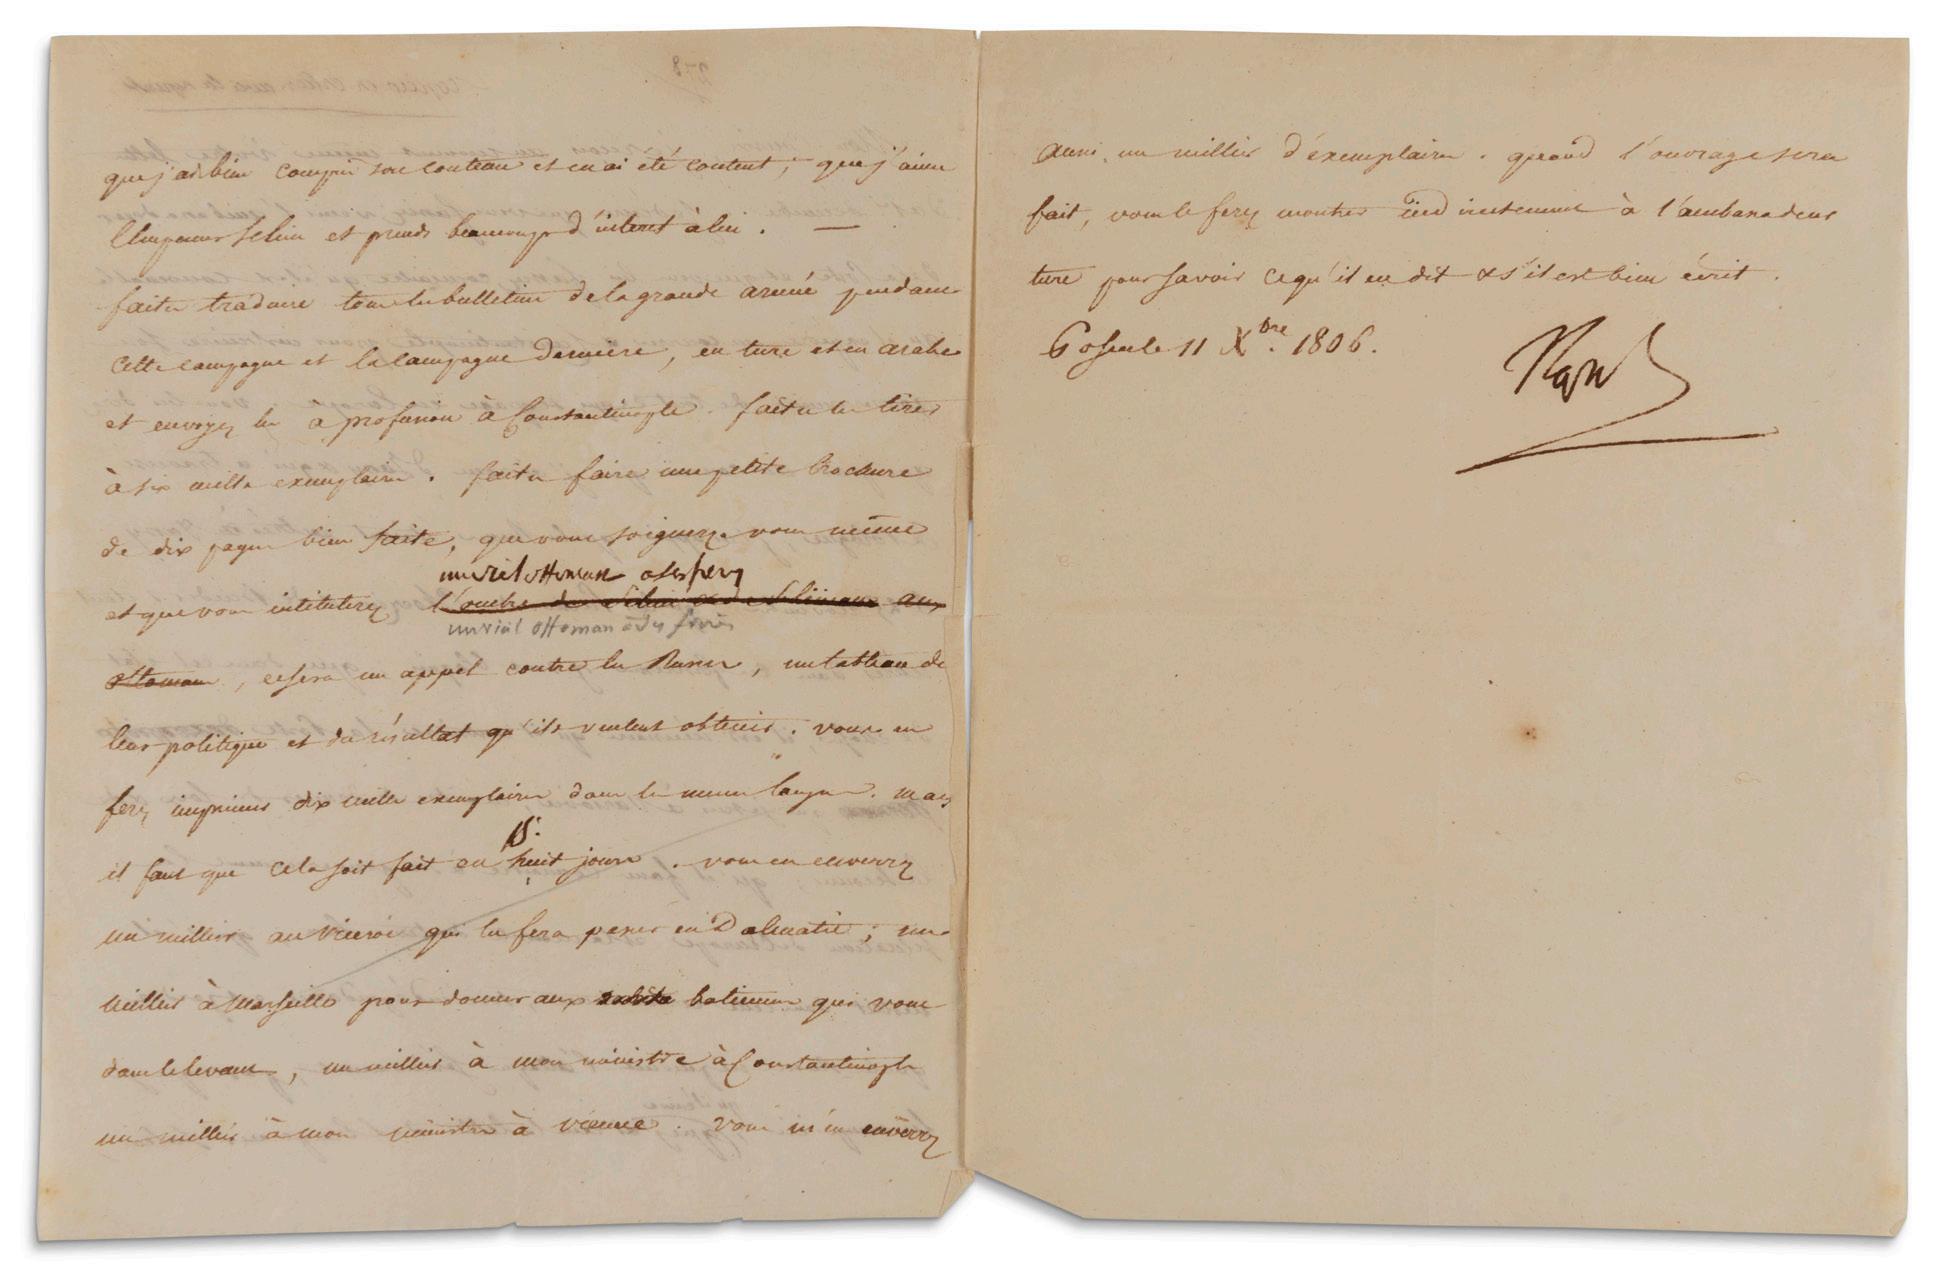 que j'ai bien compris son contenu et en ai été content ; que j'aime
l'Empereur Selim et prends beaucoup d'interet à lui . —
faites traduire tous les bulletins de la grande armée pendant
cette campagne et la campagne derniere, en turc et en arabe
et envoyez les à profusion à Constantinople . faites les tirer
à six mille exemplaires . faites faire une petite brochure
de dix pages bien faite, que vous soignerez vous même
un vieil ottoman à ses frères
et que vous intitulerez l'ombre de Selim aux
un vieil ottoman à ses frères
ottomans , ce sera un appel contre les Russes , un tableau de
leur politique et du résultat qu'ils veulent obtenir . vous en
ferez imprimer dix mille exemplaires dans les mêmes langues . mais
15.
il faut que cela soit fait en huit jours . vous en enverrez
un millier au viceroi qui les fera passer en Dalmatie ; un
millier à Marseille pour donner aux batimens qui vont
dans le levant , un millier à mon ministre à Constantinople
un millier à mon ministre à vienne . vous m'en enverrez
aussi un millier d'éxemplaires . quand l'ouvrage sera
fait, vous le ferez montrer indirectement à l'ambassadeur
turc pour savoir ce qu'il en dit & s'il est bien écrit .
Posen le 11 Xbre. 1806 .
Nap